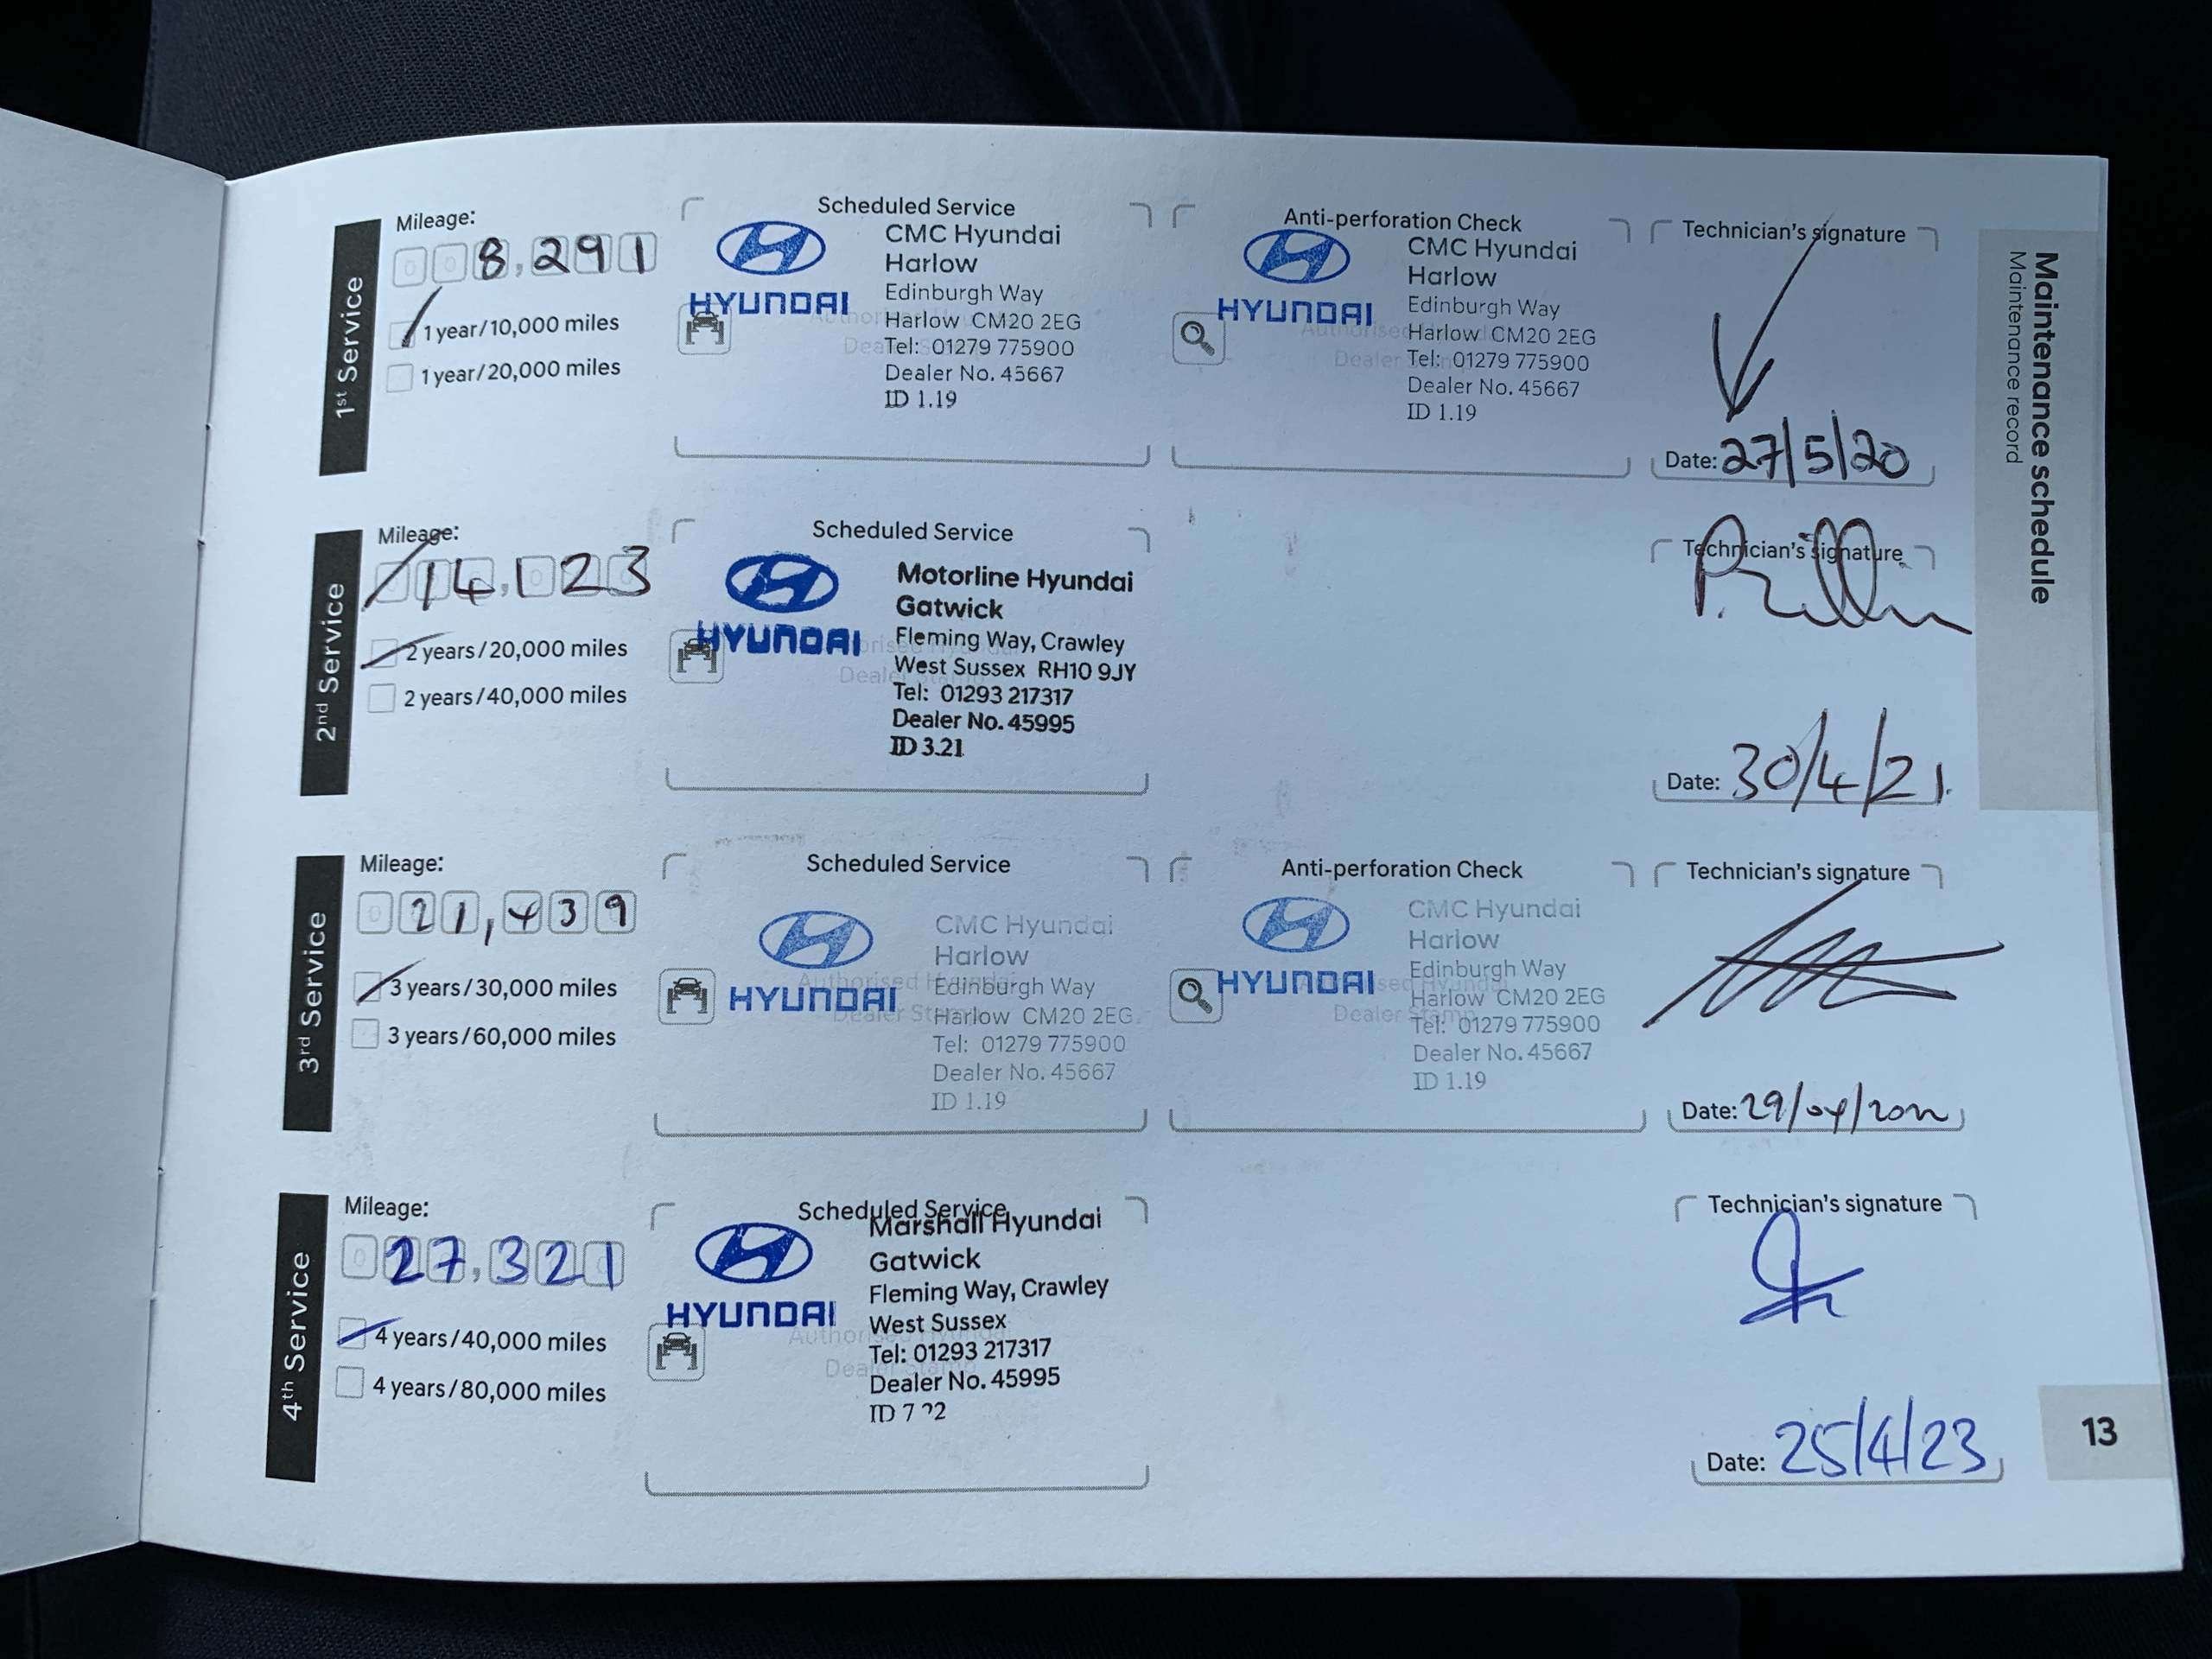 Maintenance schedule
Maintenance record
1st Service
Mileage:
008,291
1 year/10,000 miles
1 year/20,000 miles
Scheduled Service
HYUNDAI
CMC Hyundai
Harlow
Edinburgh Way
Harlow CM20 2EG
Tel: 01279 775900
Dealer No. 45667
ID 1.19
Anti-perforation Check
HYUNDAI
CMC Hyundai
Harlow
Edinburgh Way
Harlow CM20 2EG
Tel: 01279 775900
Dealer No. 45667
ID 1.19
Technician's signature
Date: 27/5/20
2nd Service
Mileage:
14,123
2 years/20,000 miles
2 years/40,000 miles
Scheduled Service
HYUNDAI
Motorline Hyundai
Gatwick
Fleming Way, Crawley
West Sussex RH10 9JY
Tel: 01293 217317
Dealer No. 45995
ID 3.21
Technician's signature
Date: 30/4/21.
3rd Service
Mileage:
021,439
3 years/30,000 miles
3 years/60,000 miles
Scheduled Service
HYUNDAI
Authorised Hyundai
Dealer Stamp
CMC Hyundai
Harlow
Edinburgh Way
Harlow CM20 2EG
Tel: 01279 775900
Dealer No. 45667
ID 1.19
Anti-perforation Check
HYUNDAI
CMC Hyundai
Harlow
Edinburgh Way
Harlow CM20 2EG
Tel: 01279 775900
Dealer No. 45667
ID 1.19
Technician's signature
Date: 29/04/2022
4th Service
Mileage:
027,321
4 years/40,000 miles
4 years/80,000 miles
Scheduled Service
HYUNDAI
Marshall Hyundai
Gatwick
Fleming Way, Crawley
West Sussex
Tel: 01293 217317
Dealer No. 45995
ID 7 22
Technician's signature
Date: 25/4/23
13